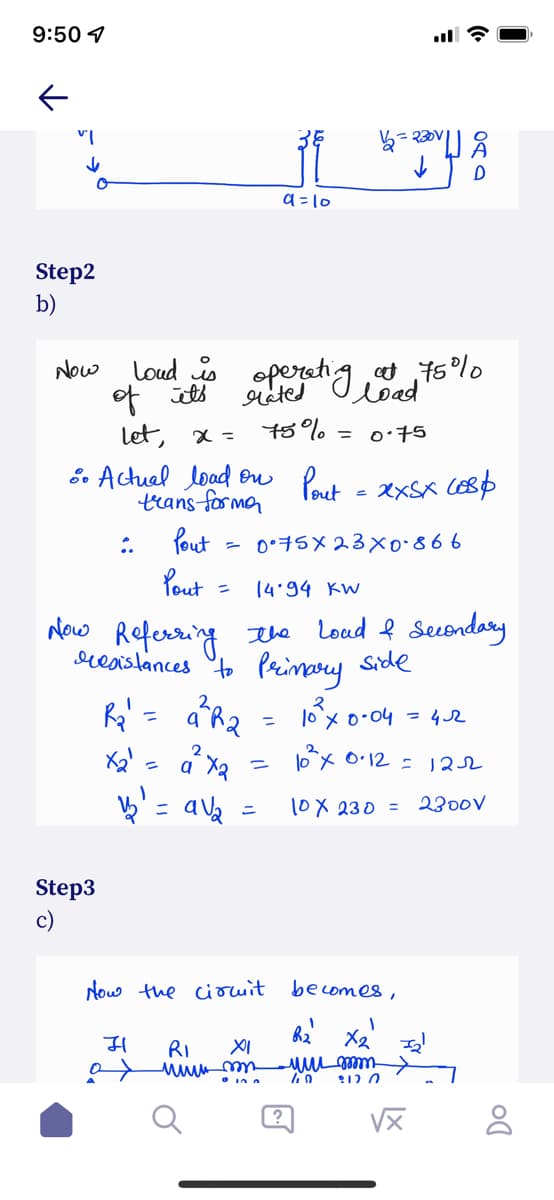 9:50
V1
3E
V2 = 230V
O
A
D
a = 10
Step2
b)
Now Load is operating at 75%
of its rated load
Let, x = 75% = 0.75
∴ Actual load on transformer Pout = x×S× cosϕ
∴ Pout = 0.75 × 23 × 0.866
Pout = 14.94 KW
Now Referring the Load & Secondary
resistances to Primary side
R2' = a²R2 = 10² × 0.04 = 4Ω
X2' = a²X2 = 10² × 0.12 = 12Ω
V2' = aV2 = 10 × 230 = 2300V
Step3
c)
Now the circuit becomes,
I1 R1 X1 R2' X2' I2'